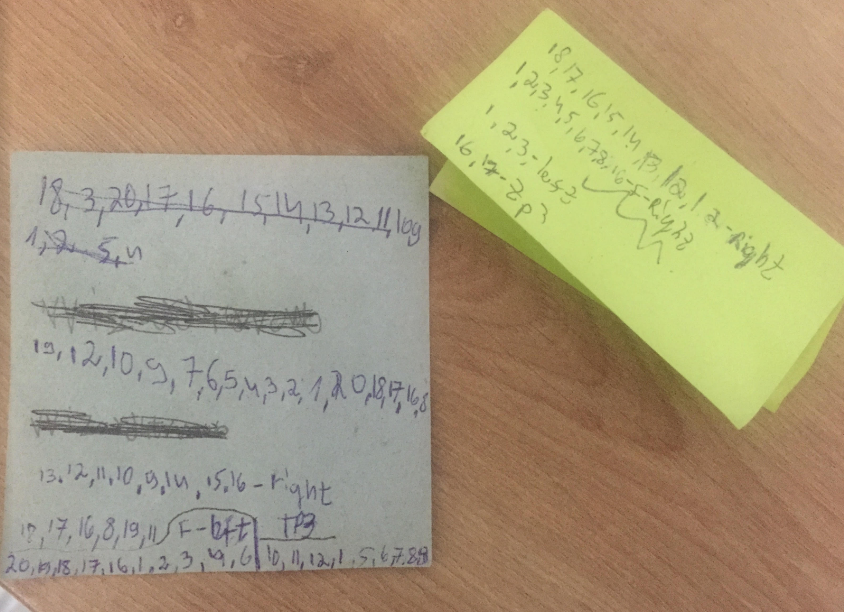 18, 3, 20, 17, 16, 15, 14, 13, 12, 11, 10 9
1, 2 5, 4
19, 12, 10, 9, 7, 6, 5, 4, 3, 2, 1, 20, 18, 17, 16, 8
13, 12, 11, 10, 9, 14, 15, 16 - right
18, 17, 16, 8, 19, 11 F - left TP3
20, 19, 18, 17, 16, 1, 2, 3, 4, 6 10, 11, 12, 1, 5, 6, 7, 8, 9
18, 17, 16, 15, 14, 13, 12, 1 2 - right
1, 2, 3, 4, 5, 6, 7, 8, 16 - F - Right
1, 2, 3 - left
16, 17 -